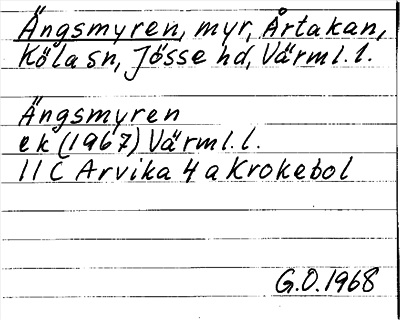 Ängsmyren, myr, Årtakan,
Köla sn, Jösse hd, Värml. l.
Ängsmyren
ek (1967) Värml. l.
11 C Arvika 4 a Krokebol
G.O. 1968